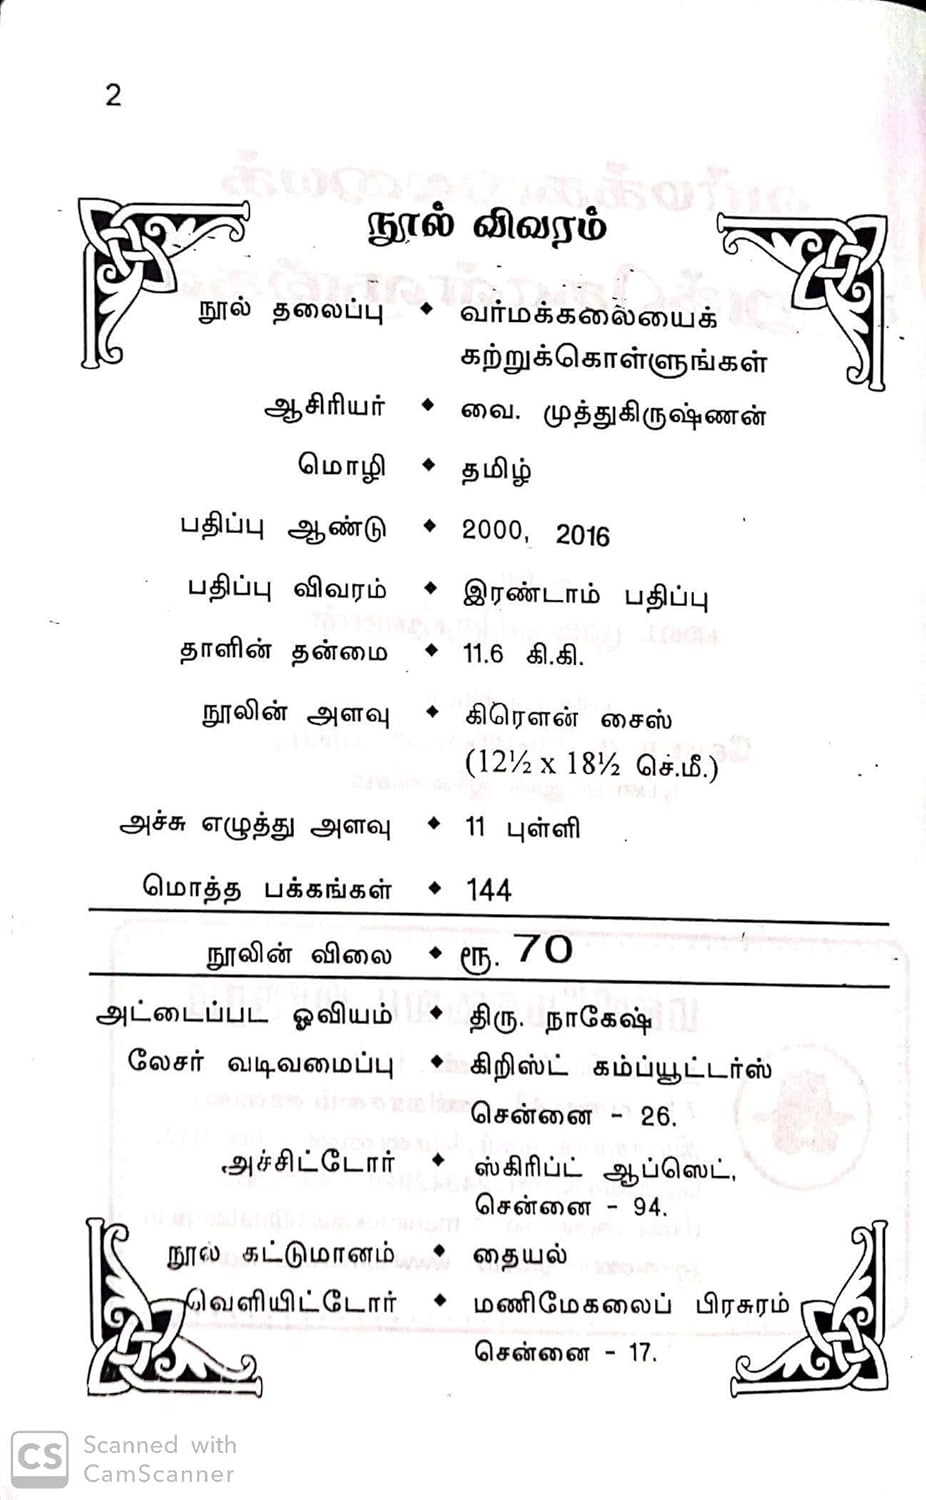 2
நூல் விவரம்
நூல் தலைப்பு ◆ வர்மக்கலையைக்
கற்றுக்கொள்ளுங்கள்
ஆசிரியர் ◆ வை. முத்துகிருஷ்ணன்
மொழி ◆ தமிழ்
பதிப்பு ஆண்டு ◆ 2000, 2016
பதிப்பு விவரம் ◆ இரண்டாம் பதிப்பு
தாளின் தன்மை ◆ 11.6 கி.கி.
நூலின் அளவு ◆ கிரௌன் சைஸ்
(12½ x 18½ செ.மீ.)
அச்சு எழுத்து அளவு ◆ 11 புள்ளி
மொத்த பக்கங்கள் ◆ 144
நூலின் விலை ◆ ரூ. 70
அட்டைப்பட ஓவியம் ◆ திரு. நாகேஷ்
லேசர் வடிவமைப்பு ◆ கிறிஸ்ட் கம்ப்யூட்டர்ஸ்
சென்னை - 26.
அச்சிட்டோர் ◆ ஸ்கிரிப்ட் ஆப்ஸெட்,
சென்னை - 94.
நூல் கட்டுமானம் ◆ தையல்
வெளியிட்டோர் ◆ மணிமேகலைப் பிரசுரம்
சென்னை - 17.
CS Scanned with
CamScanner